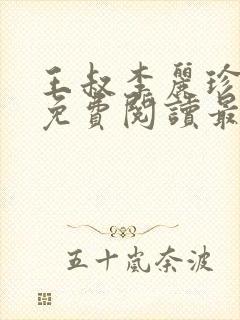 王叔李麗珍
免費閱讀最
五十嵐奈波